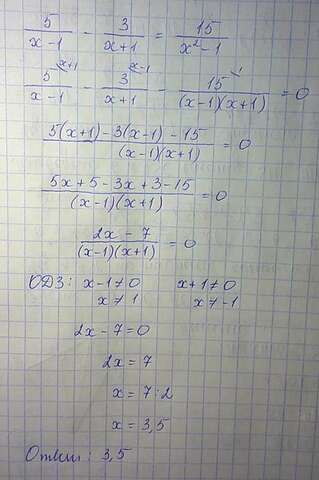 5/(x-1) - 3/(x+1) = 15/(x²-1)
5^(x+1)/(x-1) - 3^(x-1)/(x+1) - 15^(1)/((x-1)(x+1)) = 0
(5(x+1)-3(x-1)-15)/((x-1)(x+1)) = 0
(5x+5-3x+3-15)/((x-1)(x+1)) = 0
(2x-7)/((x-1)(x+1)) = 0
ОДЗ: x-1≠0 x+1≠0
x≠1 x≠-1
2x-7=0
2x=7
x=7:2
x=3,5
Ответ: 3,5